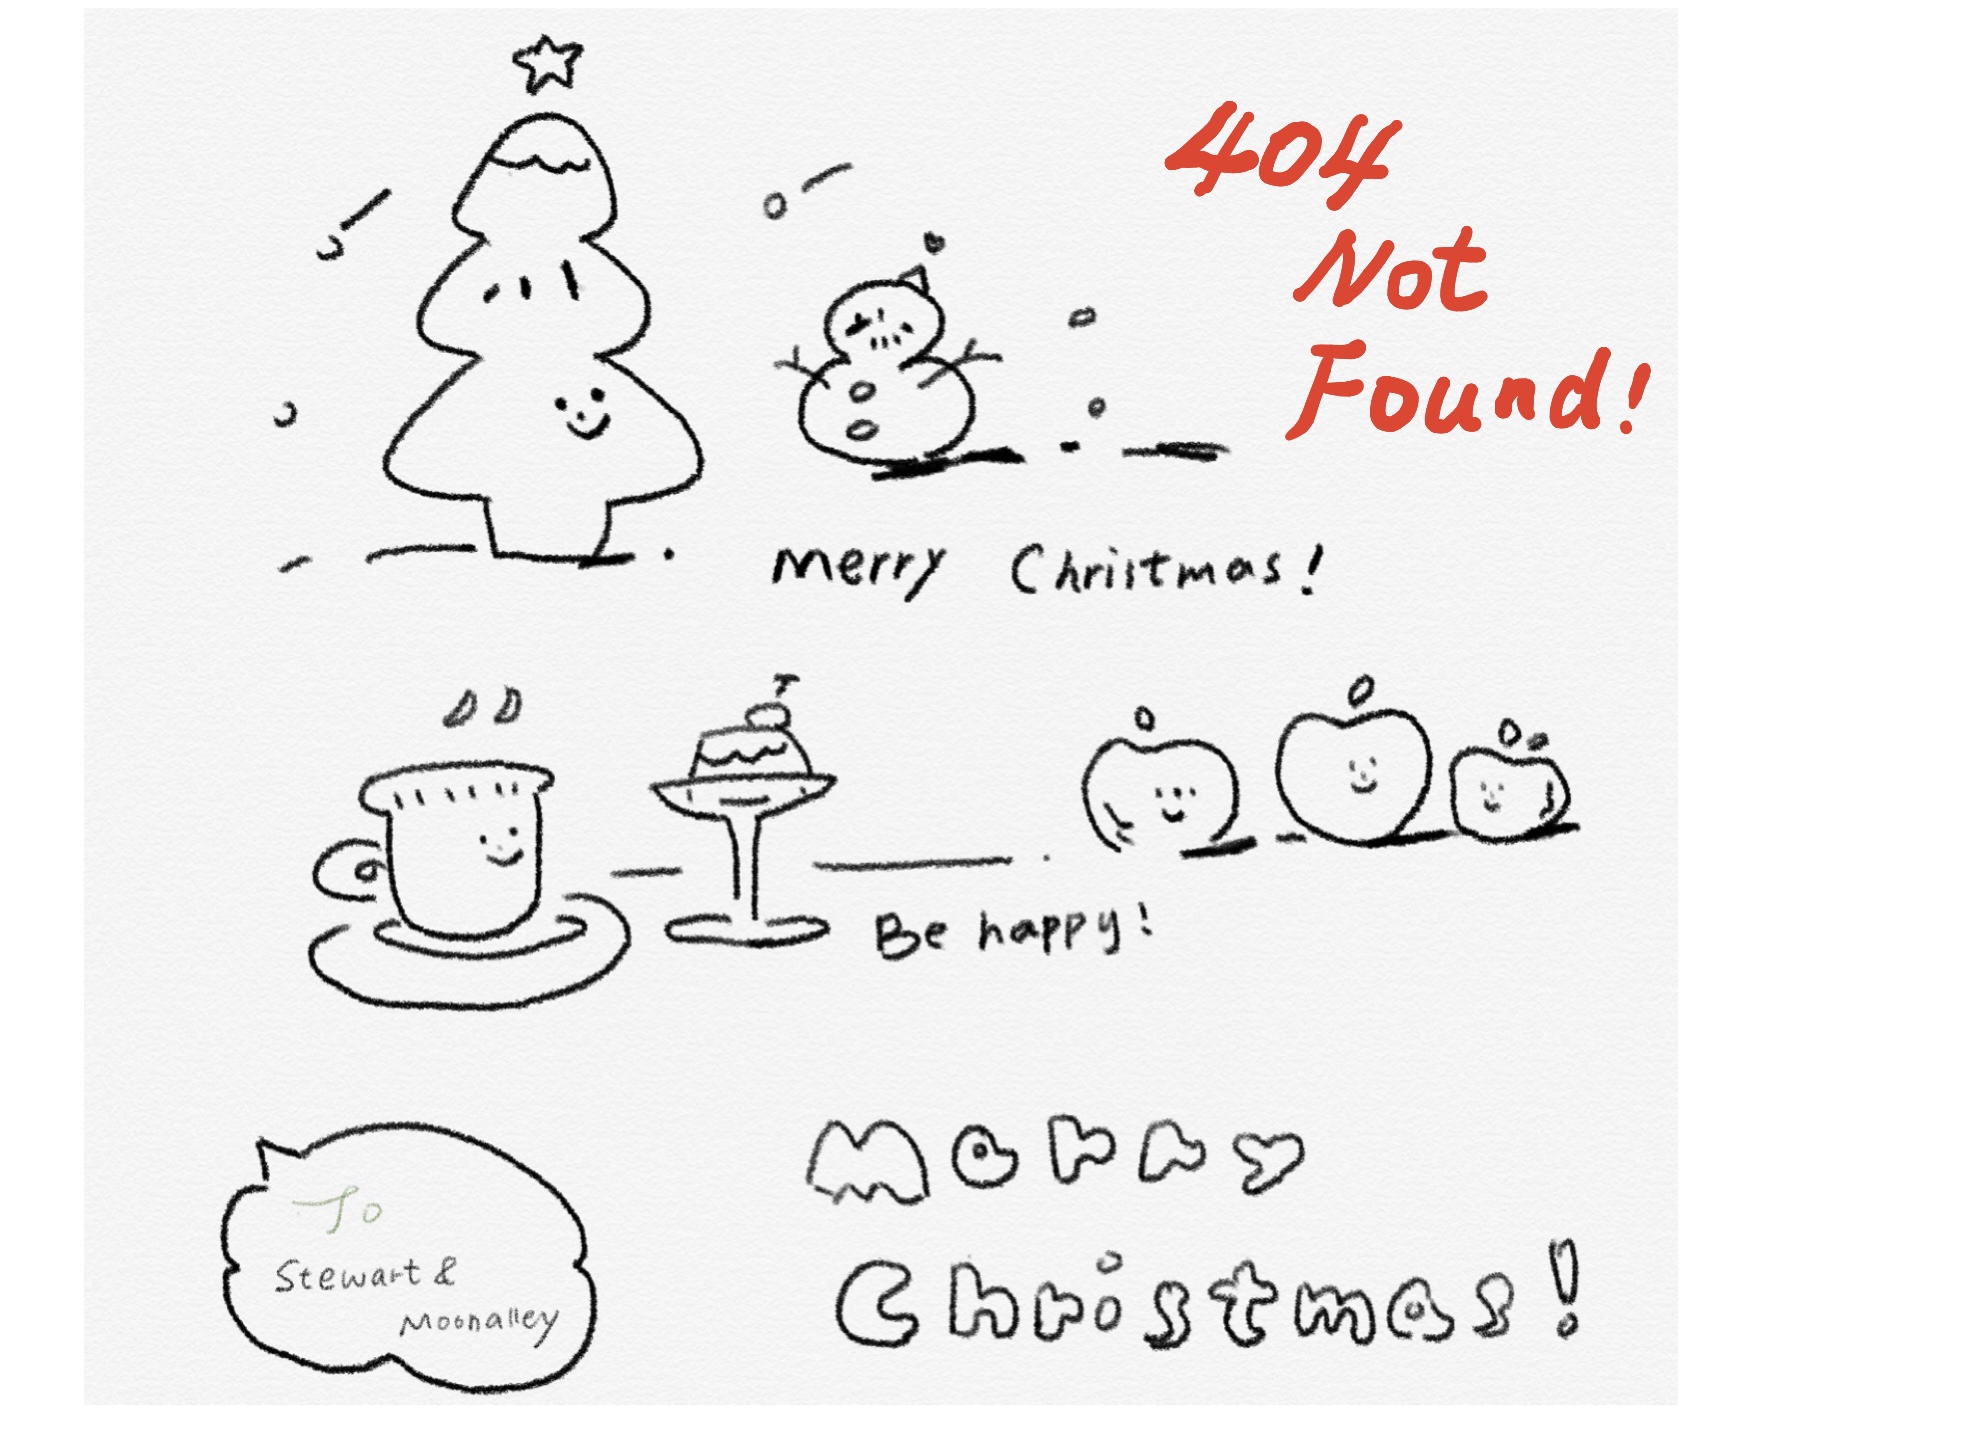 404
Not
Found!
merry Christmas!
Be happy!
To
Stewart &
Moonalley
Merry
Christmas!